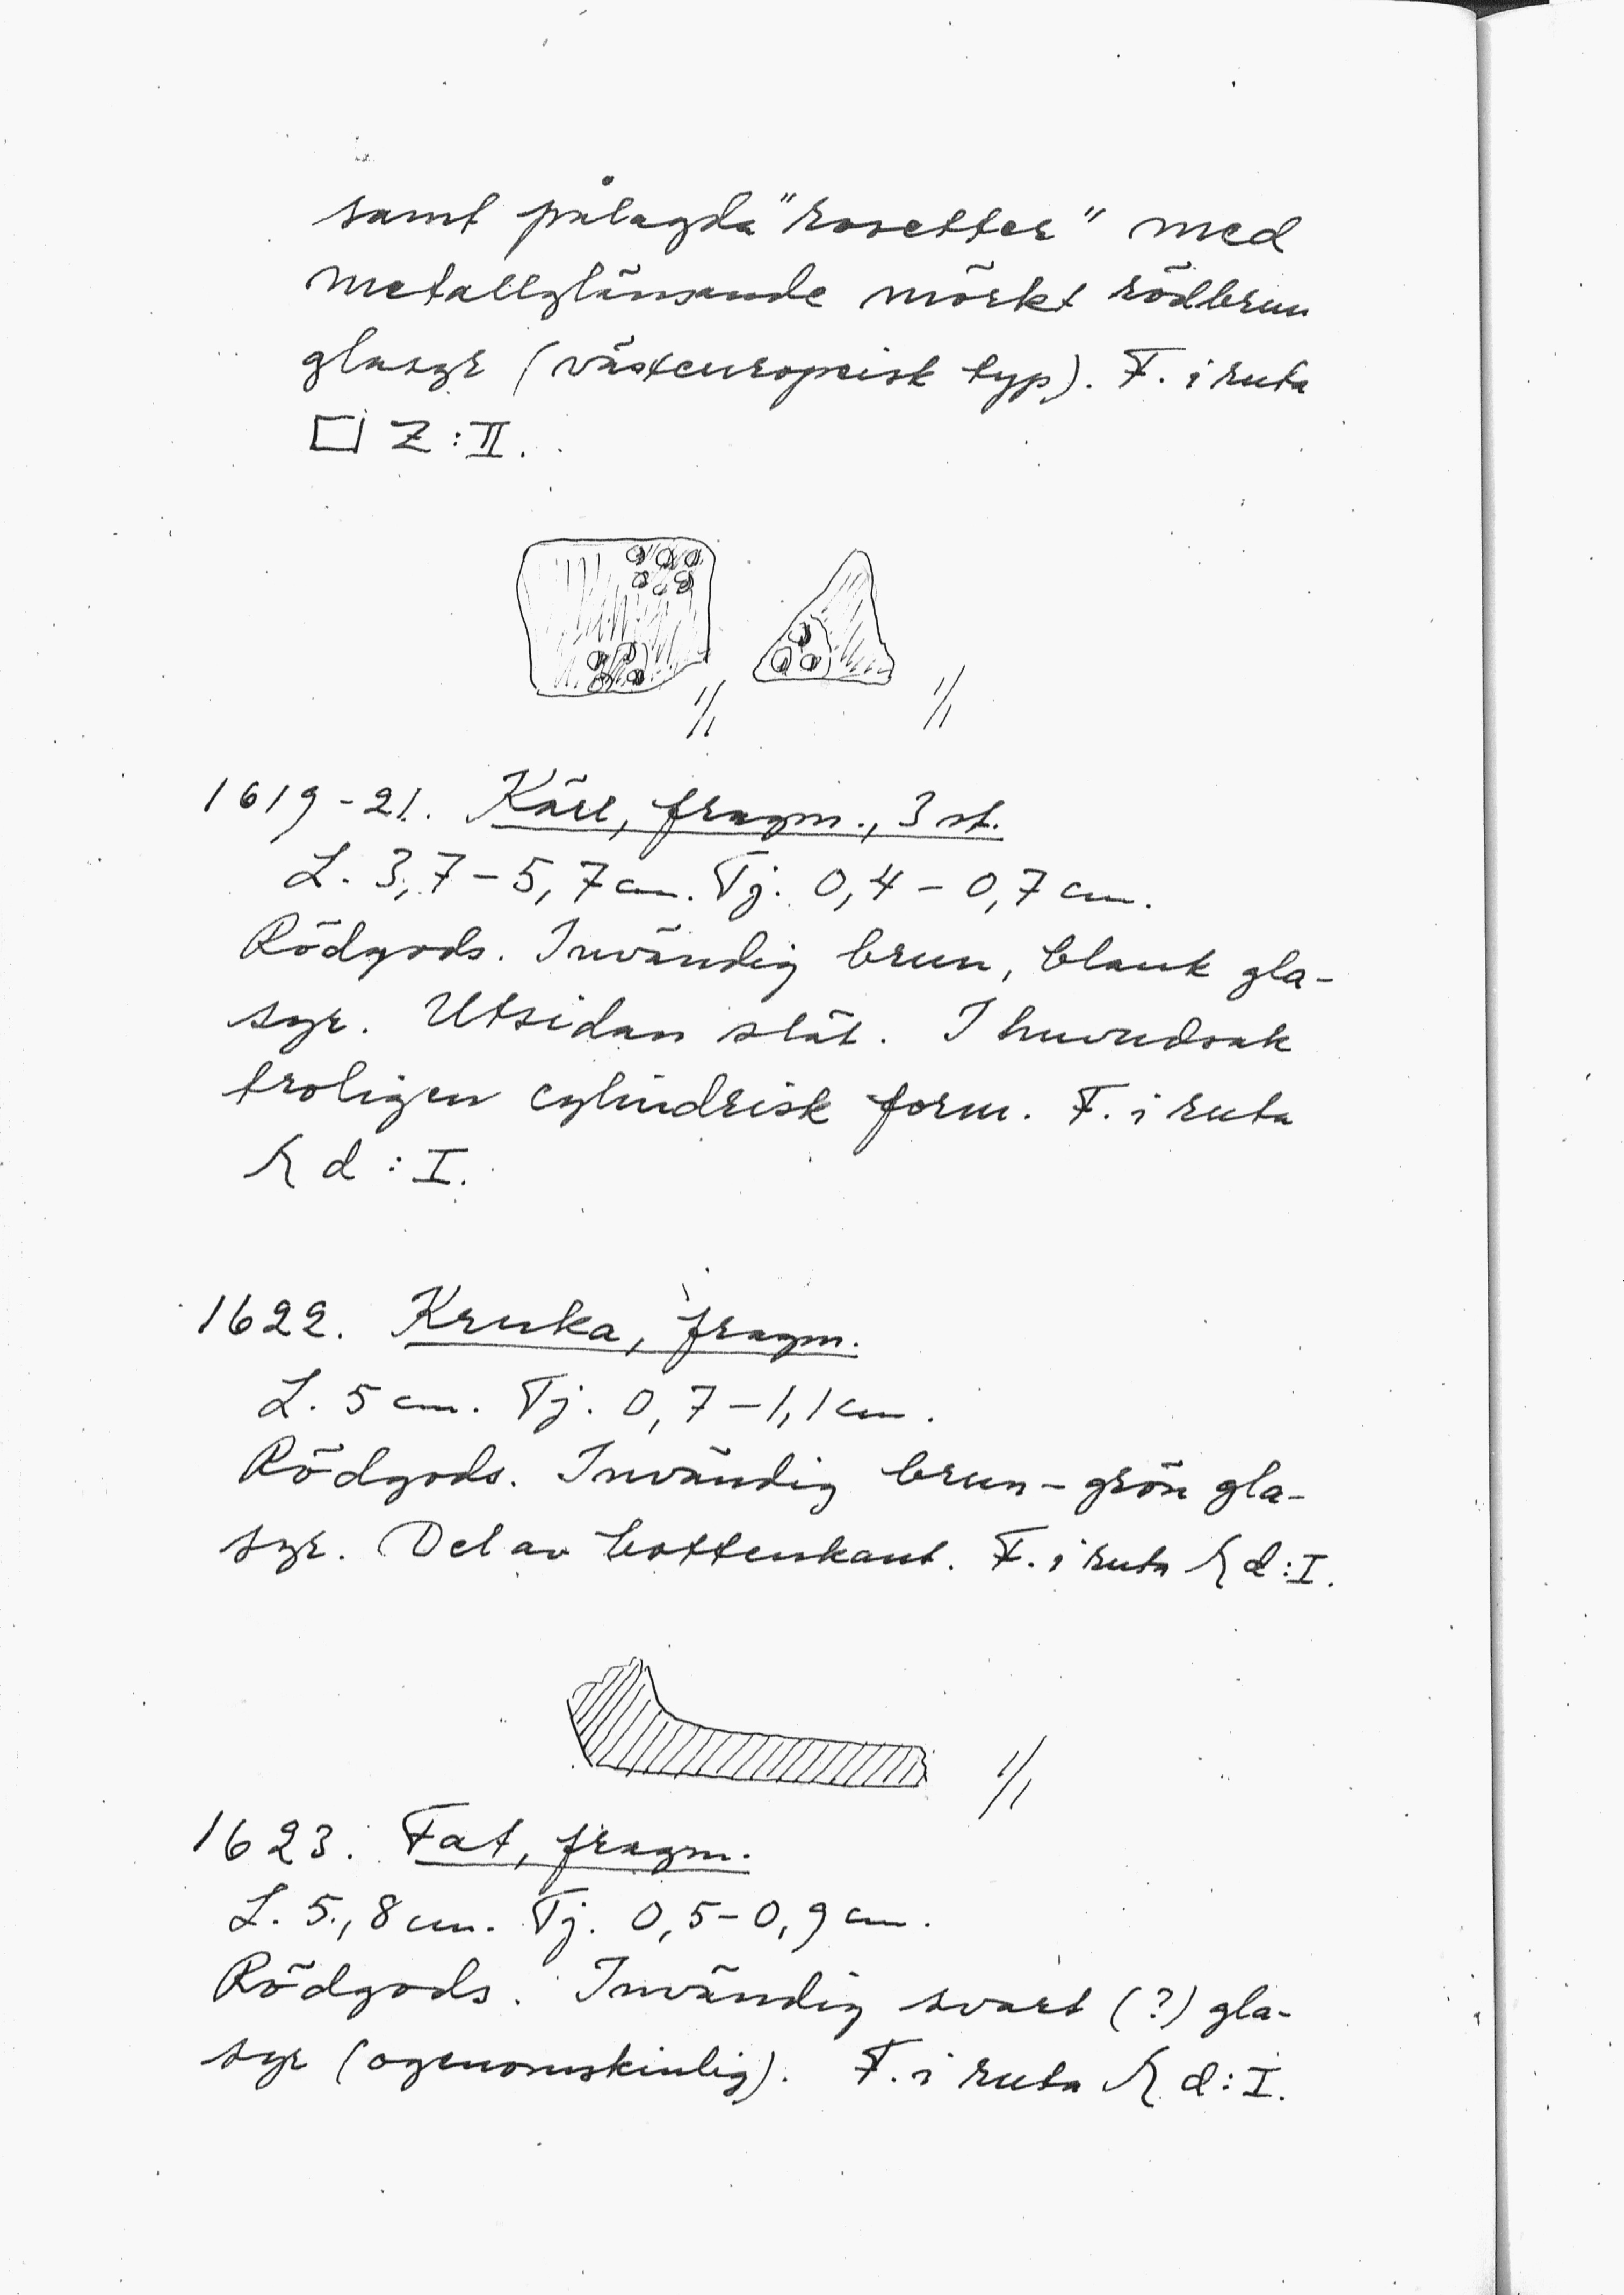 samt pålagda "rosetter" med
metallglänsande mörkt rödbrun
glasyr (västeuropeisk typ). F. i ruta
□ Z : II.
1/1 1/1
1619-21. Kärl, fragm., 3 st.
L. 3,7 – 5,7 cm. Tj. 0,4 – 0,7 cm.
Rödgods. Invändig brun, blank gla-
syr. Utsidan slät. I huvudsak
troligen cylindrisk form. F. i ruta
d : I.
1622. Kruka, fragm.
L. 5 cm. Tj. 0,7 – 1,1 cm.
Rödgods. Invändig brun-grön gla-
syr. Del av bottenkant. F. i ruta d : I.
1/1
1623. Fat, fragm.
L. 5,8 cm. Tj. 0,5 – 0,9 cm.
Rödgods. Invändig svart (?) gla-
syr (ogenomskinlig). F. i ruta d : I.